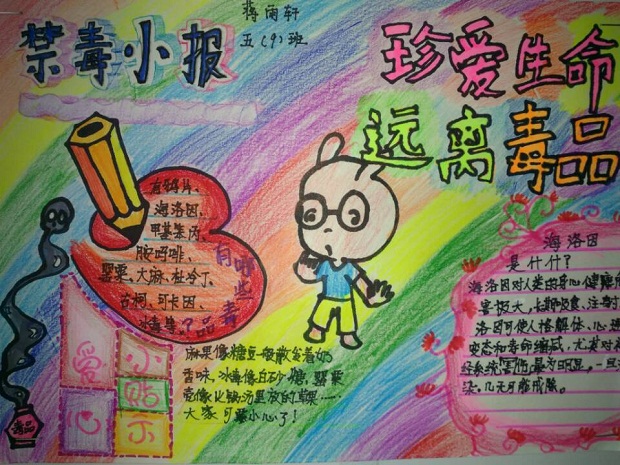 禁毒小报
蒋雨轩
五(9)班
珍爱生命
远离毒品
有鸦片、
海洛因、
甲基苯丙
胺吗啡、
罂粟、大麻、杜冷丁、
古柯、可卡因、
冰毒等
有哪些毒品?
爱心小贴示
麻果像糖豆一般散发着奶
香味,冰毒像白砂糖,罂粟
壳像火锅汤里放的草果……
大家可要小心了!
毒品
海洛因
是什么?
海洛因对人类的身心健康危
害极大,长期吸食、注射
洛因可使人格解体、心理
变态和寿命缩减,尤其对
经系统
最为明显,一旦
染,几无可能戒除。